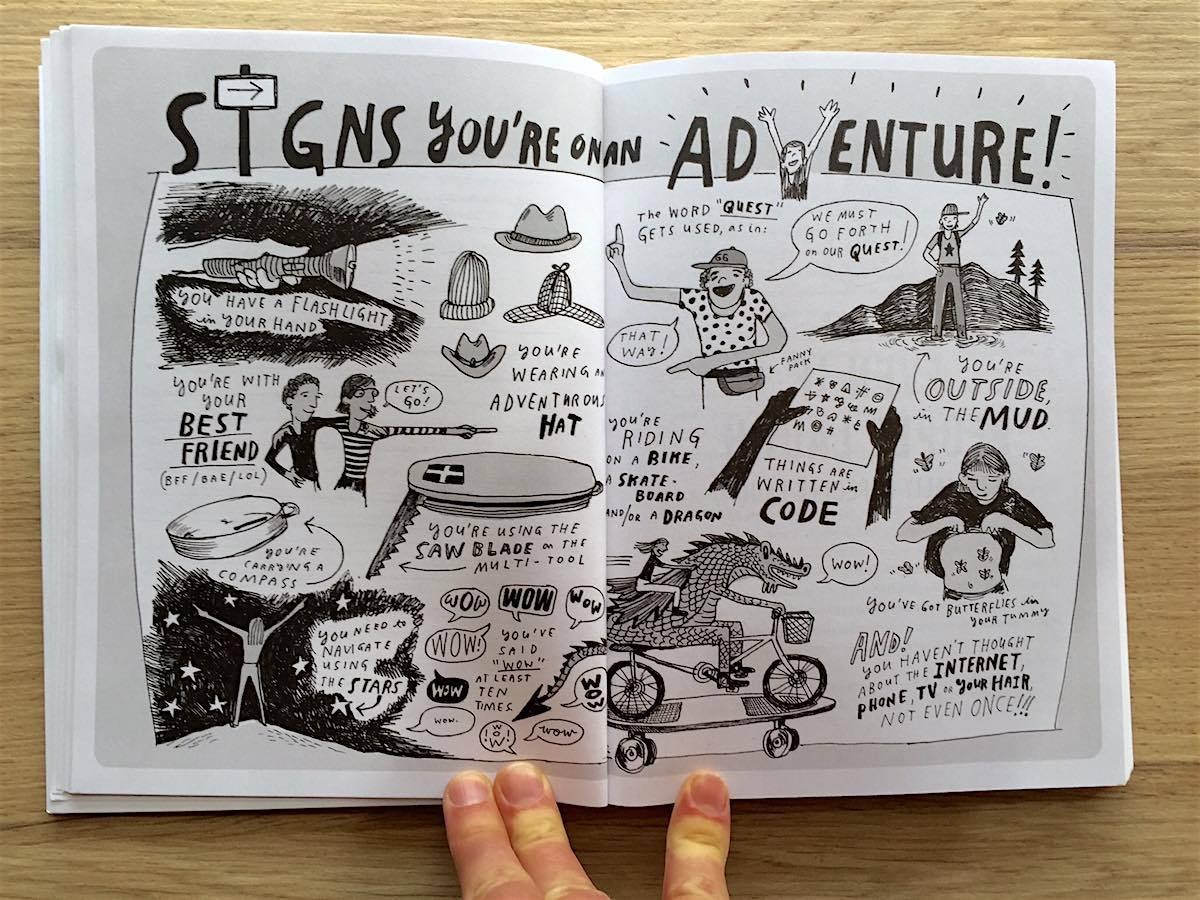 SIGNS YOU'RE ON AN ADVENTURE!
YOU HAVE A FLASHLIGHT
in YOUR HAND
YOU'RE
WEARING AN
ADVENTUROUS
HAT
YOU'RE WITH
YOUR
BEST
FRIEND
(BFF/BAE/LOL)
LET'S
GO!
YOU'RE
CARRYING A
COMPASS
YOU'RE USING THE
SAW BLADE on THE
MULTI-TOOL
YOU NEED to
NAVIGATE
USING
THE STARS
WOW
WOW
WOW
WOW!
WOW
WOW.
WOW
WOW
WOW
YOU'VE
SAID
"WOW"
AT LEAST
TEN
TIMES.
THE WORD "QUEST"
GETS USED, as in:
WE MUST
GO FORTH
on OUR QUEST!
GG
THAT
WAY!
FANNY
PACK
YOU'RE
OUTSIDE,
in THE MUD.
YOU'RE
RIDING
ON A BIKE,
A SKATE-
BOARD
AND/OR A DRAGON
THINGS ARE
WRITTEN in
CODE
WOW!
YOU'VE GOT BUTTERFLIES in
YOUR TUMMY
AND!
YOU HAVEN'T THOUGHT
ABOUT THE INTERNET,
PHONE, TV or YOUR HAIR,
NOT EVEN ONCE!!!